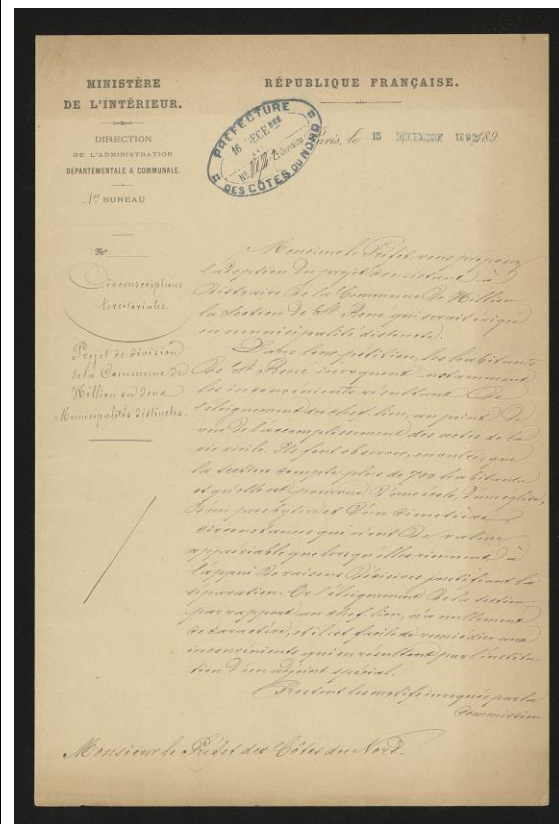 MINISTÈRE
DE L'INTÉRIEUR.
DIRECTION
DE L'ADMINISTRATION
DÉPARTEMENTALE & COMMUNALE.
1er BUREAU
No
Circonscriptions
territoriales
Projet de division
de la Commune de
Hillion en deux
Municipalités distinctes.
RÉPUBLIQUE FRANÇAISE.
PRÉFECTURE
16 DÉCEMBRE
No
DES CÔTES DU NORD
Paris, le 15 DÉCEMBRE 1892 189
Monsieur le Préfet, vous proposez
l'adoption du projet consistant à
distraire de la Commune de Hillion
la section de St René qui serait érigée
en municipalité distincte.
Dans leur pétition, les habitants
de St René invoquent notamment
les inconvénients résultant de
l'éloignement du chef-lieu, au point de
vue de l'accomplissement des actes de la
vie civile. Ils font observer, en outre, que
la section compte plus de 700 habitants
et qu'elle est pourvue d'une école, d'une église,
d'un presbytère et d'un cimetière,
circonstances qui n'ont de valeur
appréciable que lorsqu'elles viennent à
l'appui de raisons décisives justifiant la
séparation. Or l'éloignement de la section
par rapport au chef-lieu, n'a nullement
ce caractère, et il est facile de remédier aux
inconvénients qui en résultent par l'institu-
tion d'un adjoint spécial.
Restent les motifs invoqués par la
Commission
Monsieur le Préfet des Côtes du Nord.